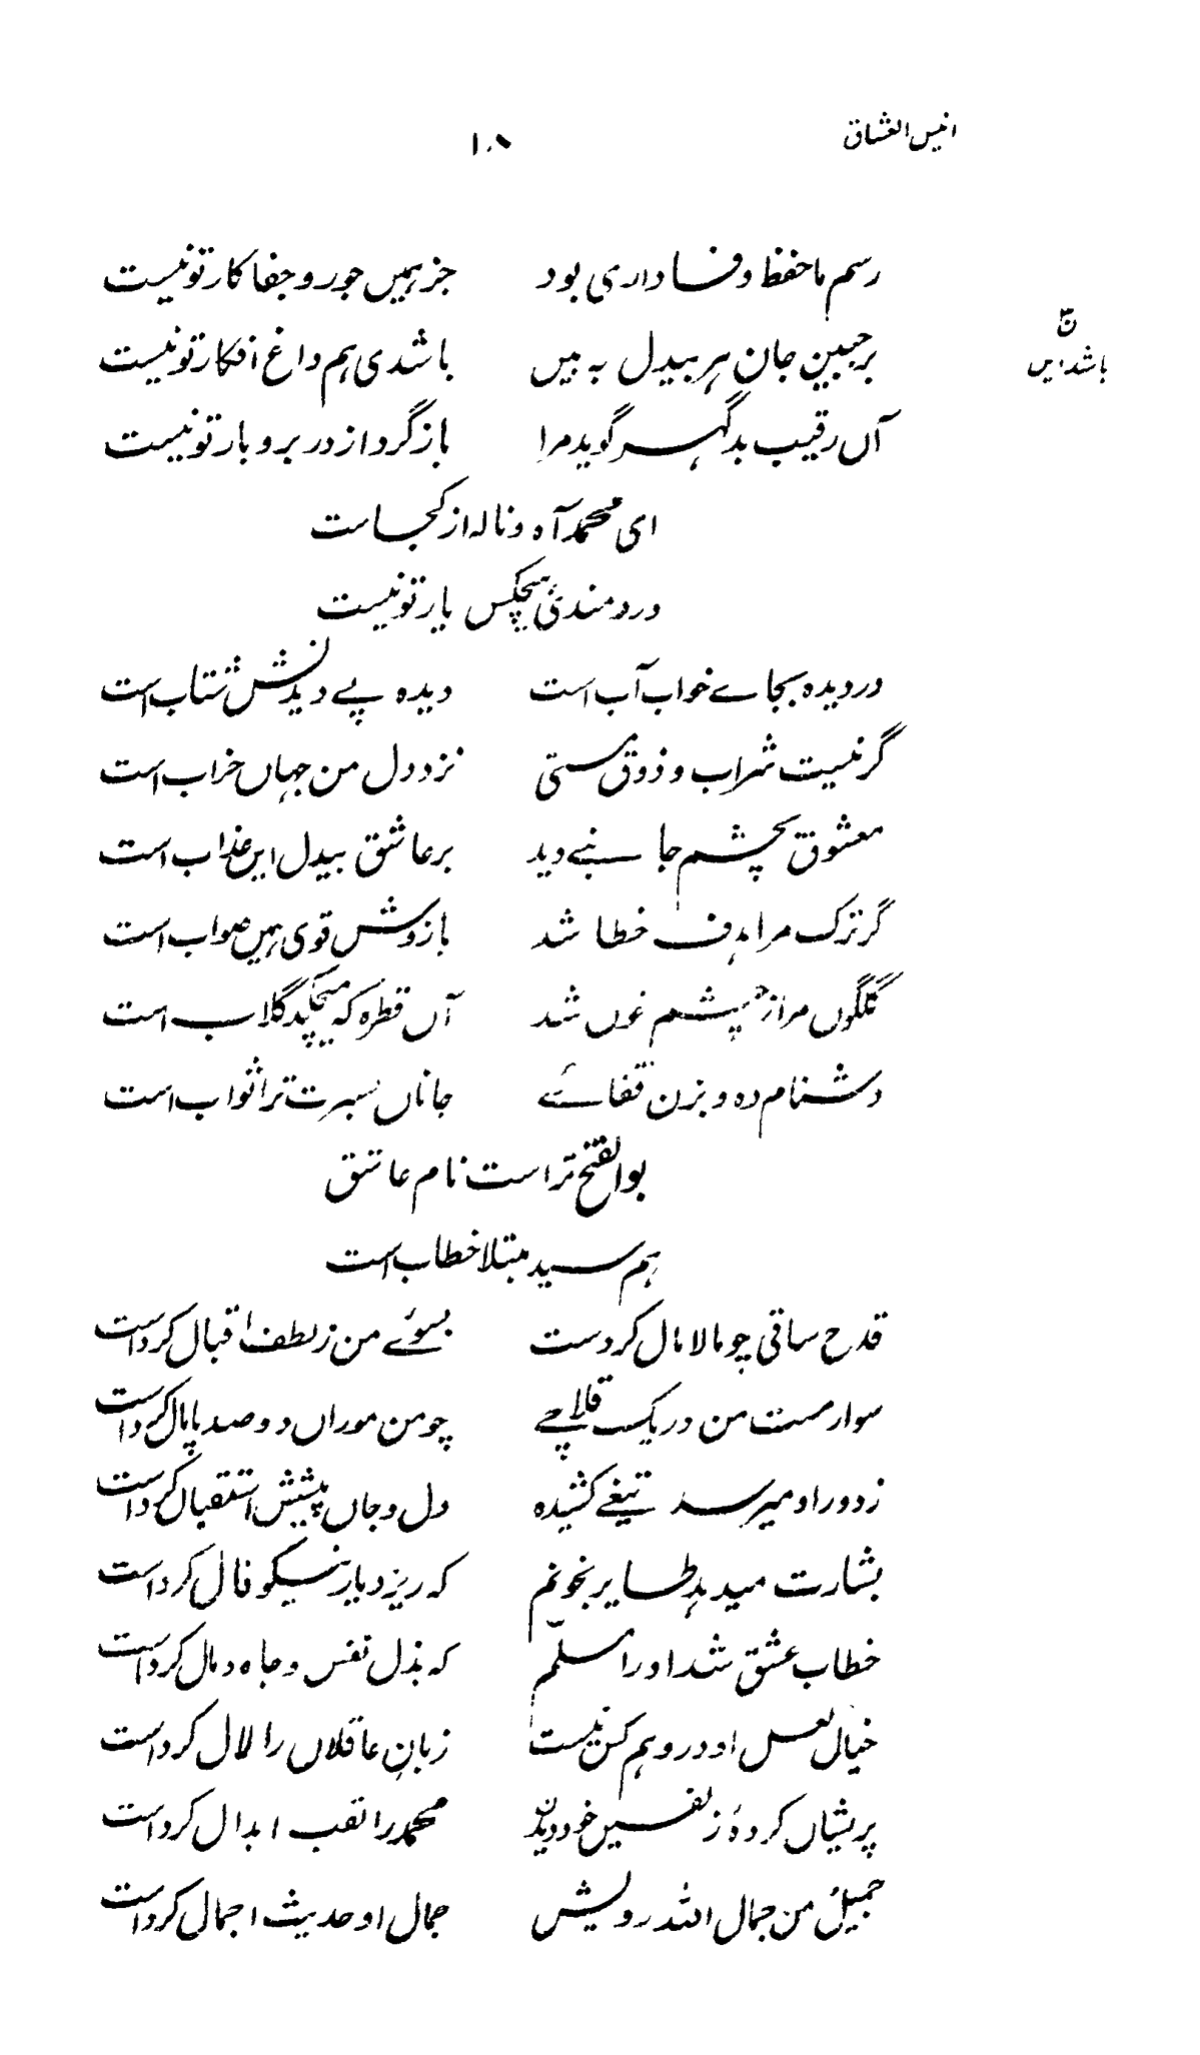 انیس العشاق ۱۰۸
رسم ما حفظ وفاداری بود جز ہمیں جور و جفا کار تو نیست
ن
باشد ایں
بر جبین جان ہر بیدل بہ بیں باشدی ہم داغ افکار تو نیست
آں رقیب بد گہر گوید مرا باز گرد از در برو بار تو نیست
ای محمد آہ و نالہ از کجاست
دردمندئ ہیچکس یار تو نیست
در دیدہ بجاے خواب آب است دیدہ پے دیدنش شتاب است
گر نیست شراب و ذوق مستی نزد دل من جہاں خراب است
معشوق بچشم جا نبے دید بر عاشق بیدل ایں عذاب است
گر ترک مرا ہدف خطا شد بازوش قوی ہیں صواب است
گلگوں مرا ز چشم خوں شد آں قطرہ کہ میچکید گلاب است
دشنام دہ و بزن قفائے جاناں بسرت ترا ثواب است
بوالفتح تراست نام عاشق
ہم سید مبتلا خطاب است
قدح ساقی چو مالامال کردست بسوئے من ز لطف اقبال کرداست
سوار مست من در یک قلاچے چو من موراں دو صد پامال کرداست
ز دور او میرسد تیغے کشیدہ دل و جاں پیشش استقبال کرداست
بشارت میدہد طایر بخونم کہ ریزد یار نیکو فال کرداست
خطاب عشق شد او را مسلم کہ بذل نفس و جاہ و مال کرداست
خیال لعل او در وہم کس نیست زبان عاقلاں را لال کرداست
پریشاں کردۂ زلفین خود دیدن محمد را لقب ابدال کرداست
جمیل من جمال اللہ رویش جمال او حدیث اجمال کرداست